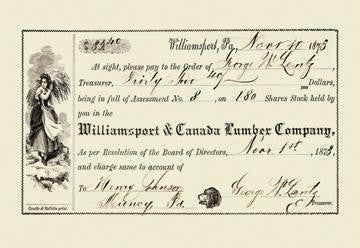 $32 40
Williamsport, Pa., Novr 10 1873
At sight, please pay to the Order of George W. Lentz,
Treasurer, Thirty Two 40/100 Dollars,
being in full of Assessment No. 8, on 180 Shares Stock held by
you in the
Williamsport & Canada Lumber Company,
As per Resolution of the Board of Directors, Novr 1st, 1873,
and charge same to account of
To Henry Johnson
George W. Lentz
Muncy Pa.
Treasurer.
Gazette & Bulletin print.